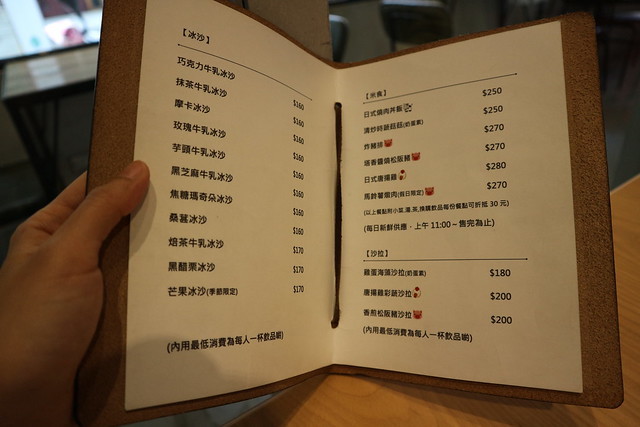 【冰沙】
巧克力牛乳冰沙 $160
抹茶牛乳冰沙 $160
摩卡冰沙 $160
玫瑰牛乳冰沙 $160
芋頭牛乳冰沙 $160
黑芝麻牛乳冰沙 $160
焦糖瑪奇朵冰沙 $160
桑葚冰沙 $160
焙茶牛乳冰沙 $170
黑醋栗冰沙 $170
芒果冰沙(季節限定) $170
(內用最低消費為每人一杯飲品呦)
【米食】
日式燒肉丼飯 $250
清炒時蔬菇菇(奶蛋素) $250
炸豬排 $270
塔香醬燒松阪豬 $270
日式唐揚雞 $280
馬鈴薯燉肉(假日限定) $270
(以上餐點附小菜,湯,茶,換購飲品每份餐點可折抵 30 元)
(每日新鮮供應，上午 11:00～售完為止)
【沙拉】
雞蛋海藻沙拉(奶蛋素) $180
唐揚雞彩蔬沙拉 $200
香煎松阪豬沙拉 $200
(內用最低消費為每人一杯飲品呦)